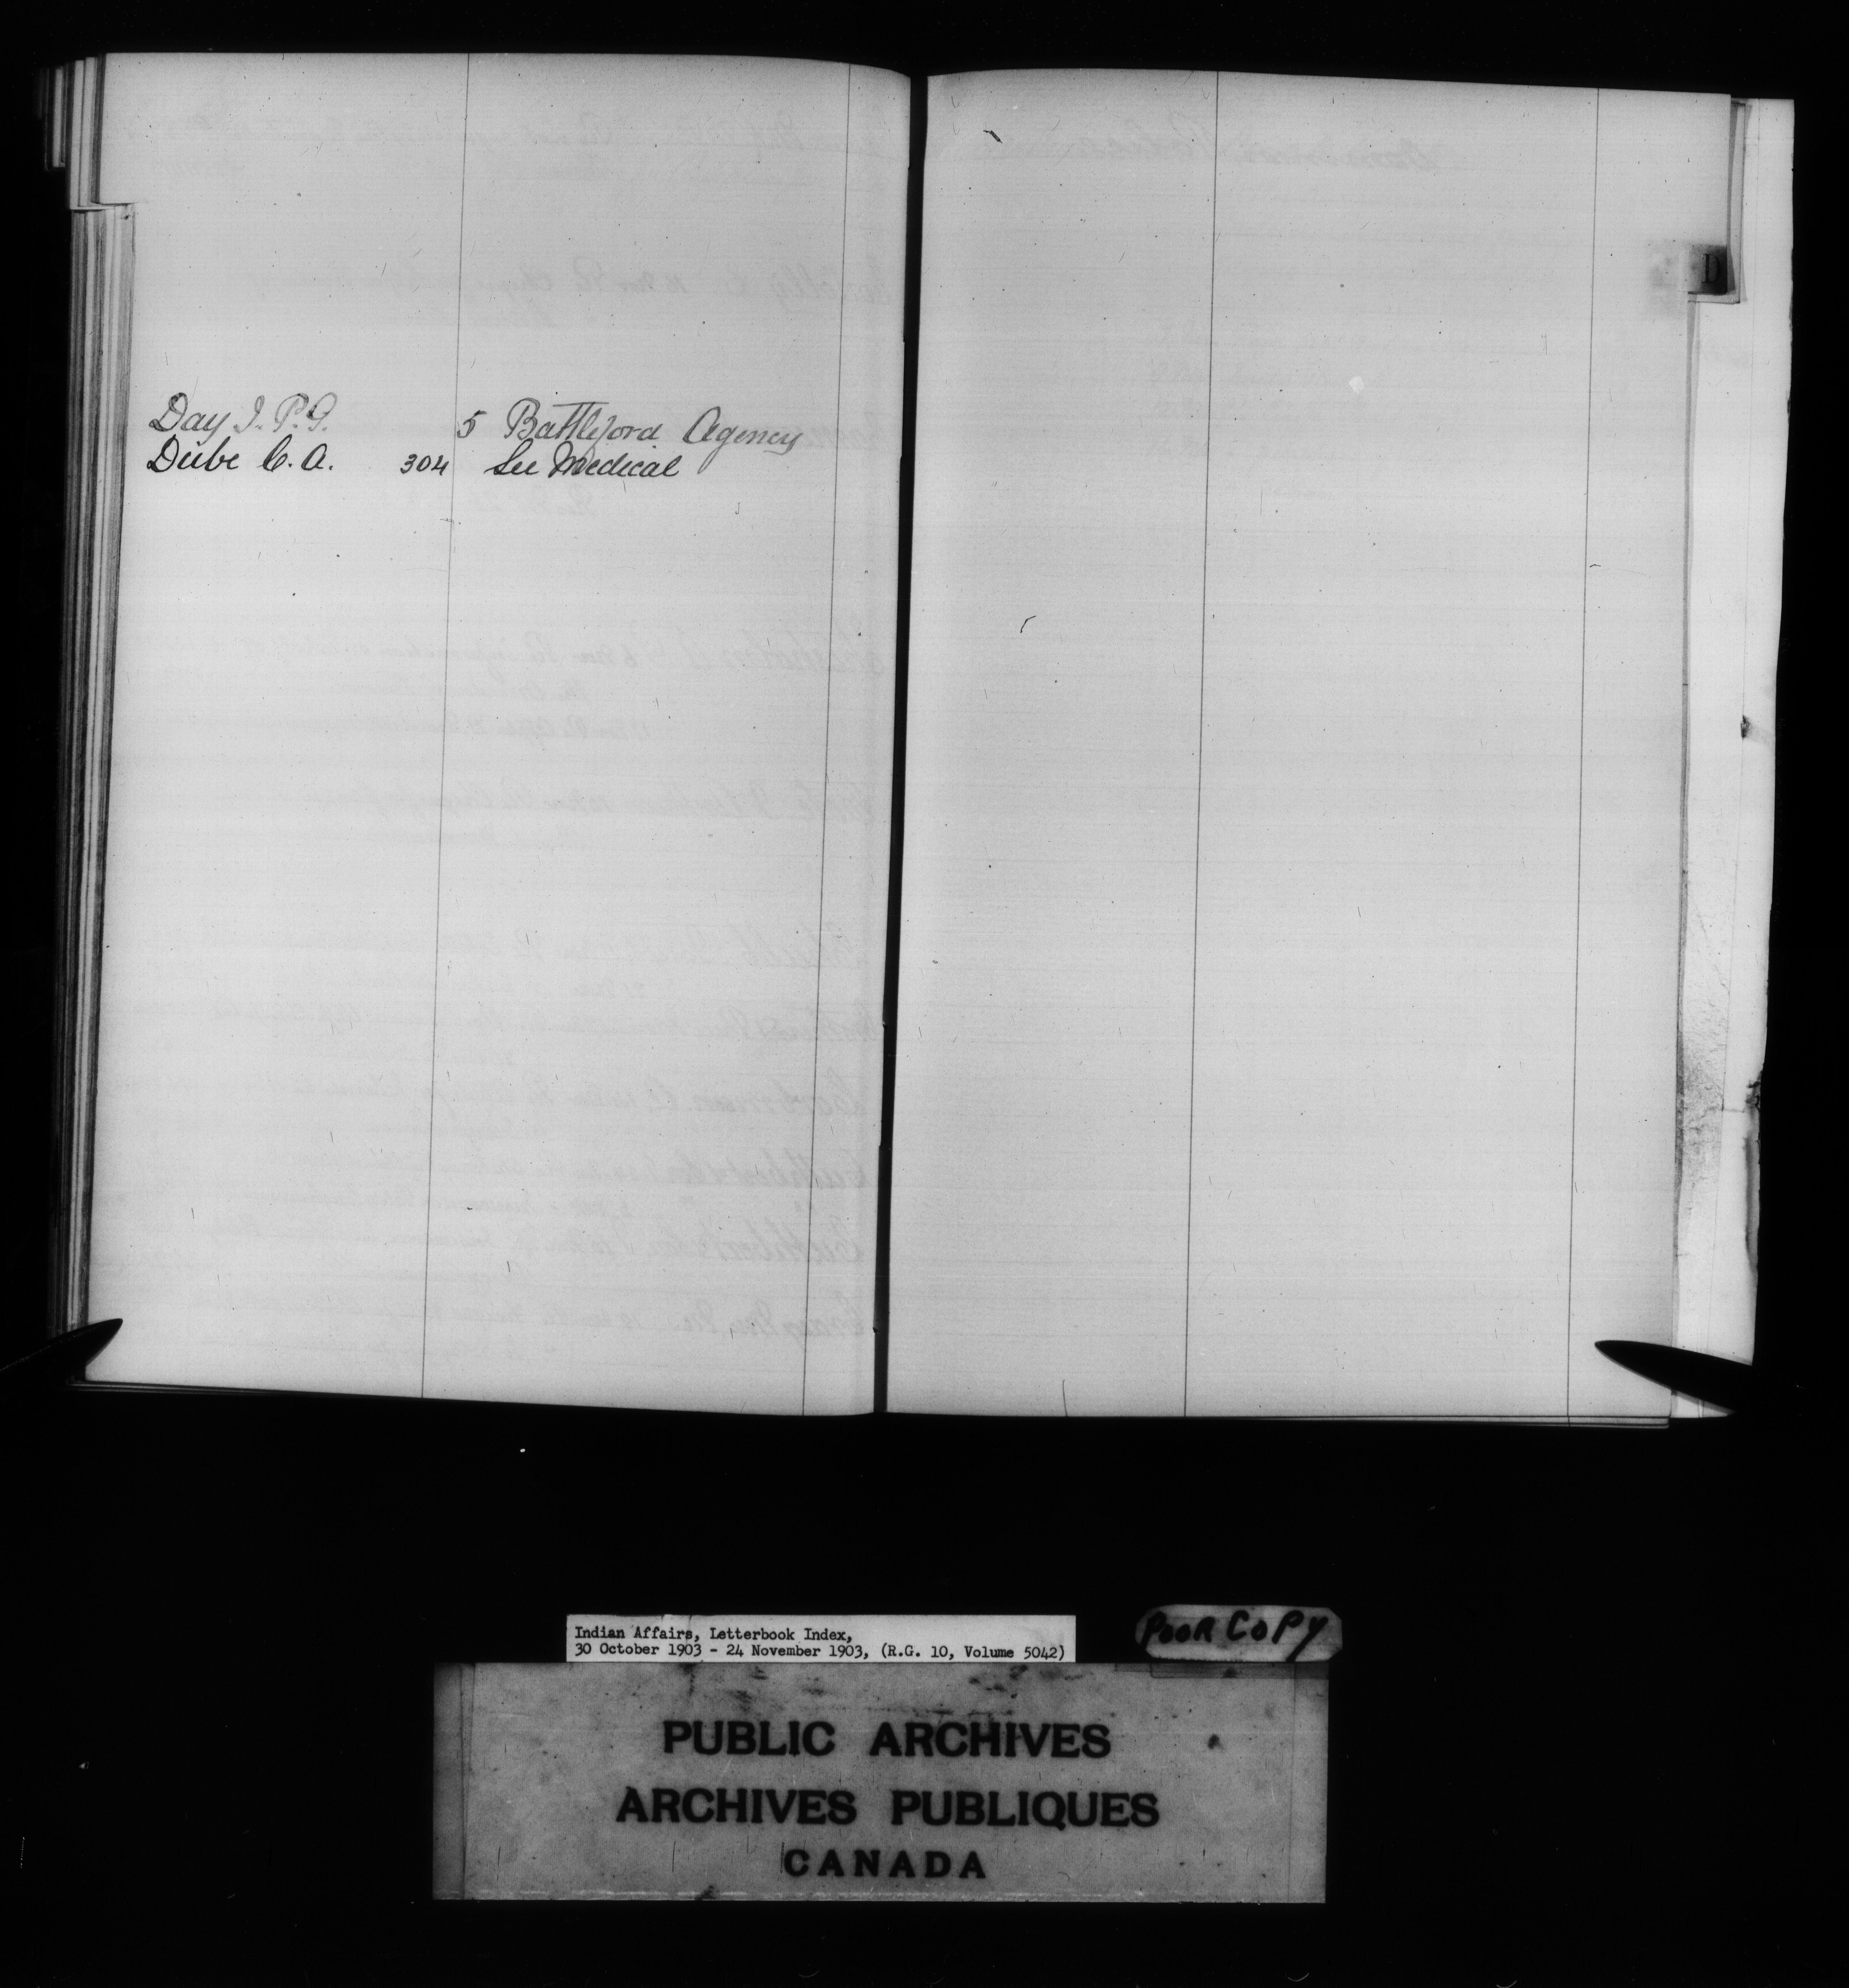 Day J. P. G. 5 Battleford Agency
Dube C. A. 304 See Medical
D
Indian Affairs, Letterbook Index,
30 October 1903 - 24 November 1903, (R.G. 10, Volume 5042)
POOR COPY
PUBLIC ARCHIVES
ARCHIVES PUBLIQUES
CANADA